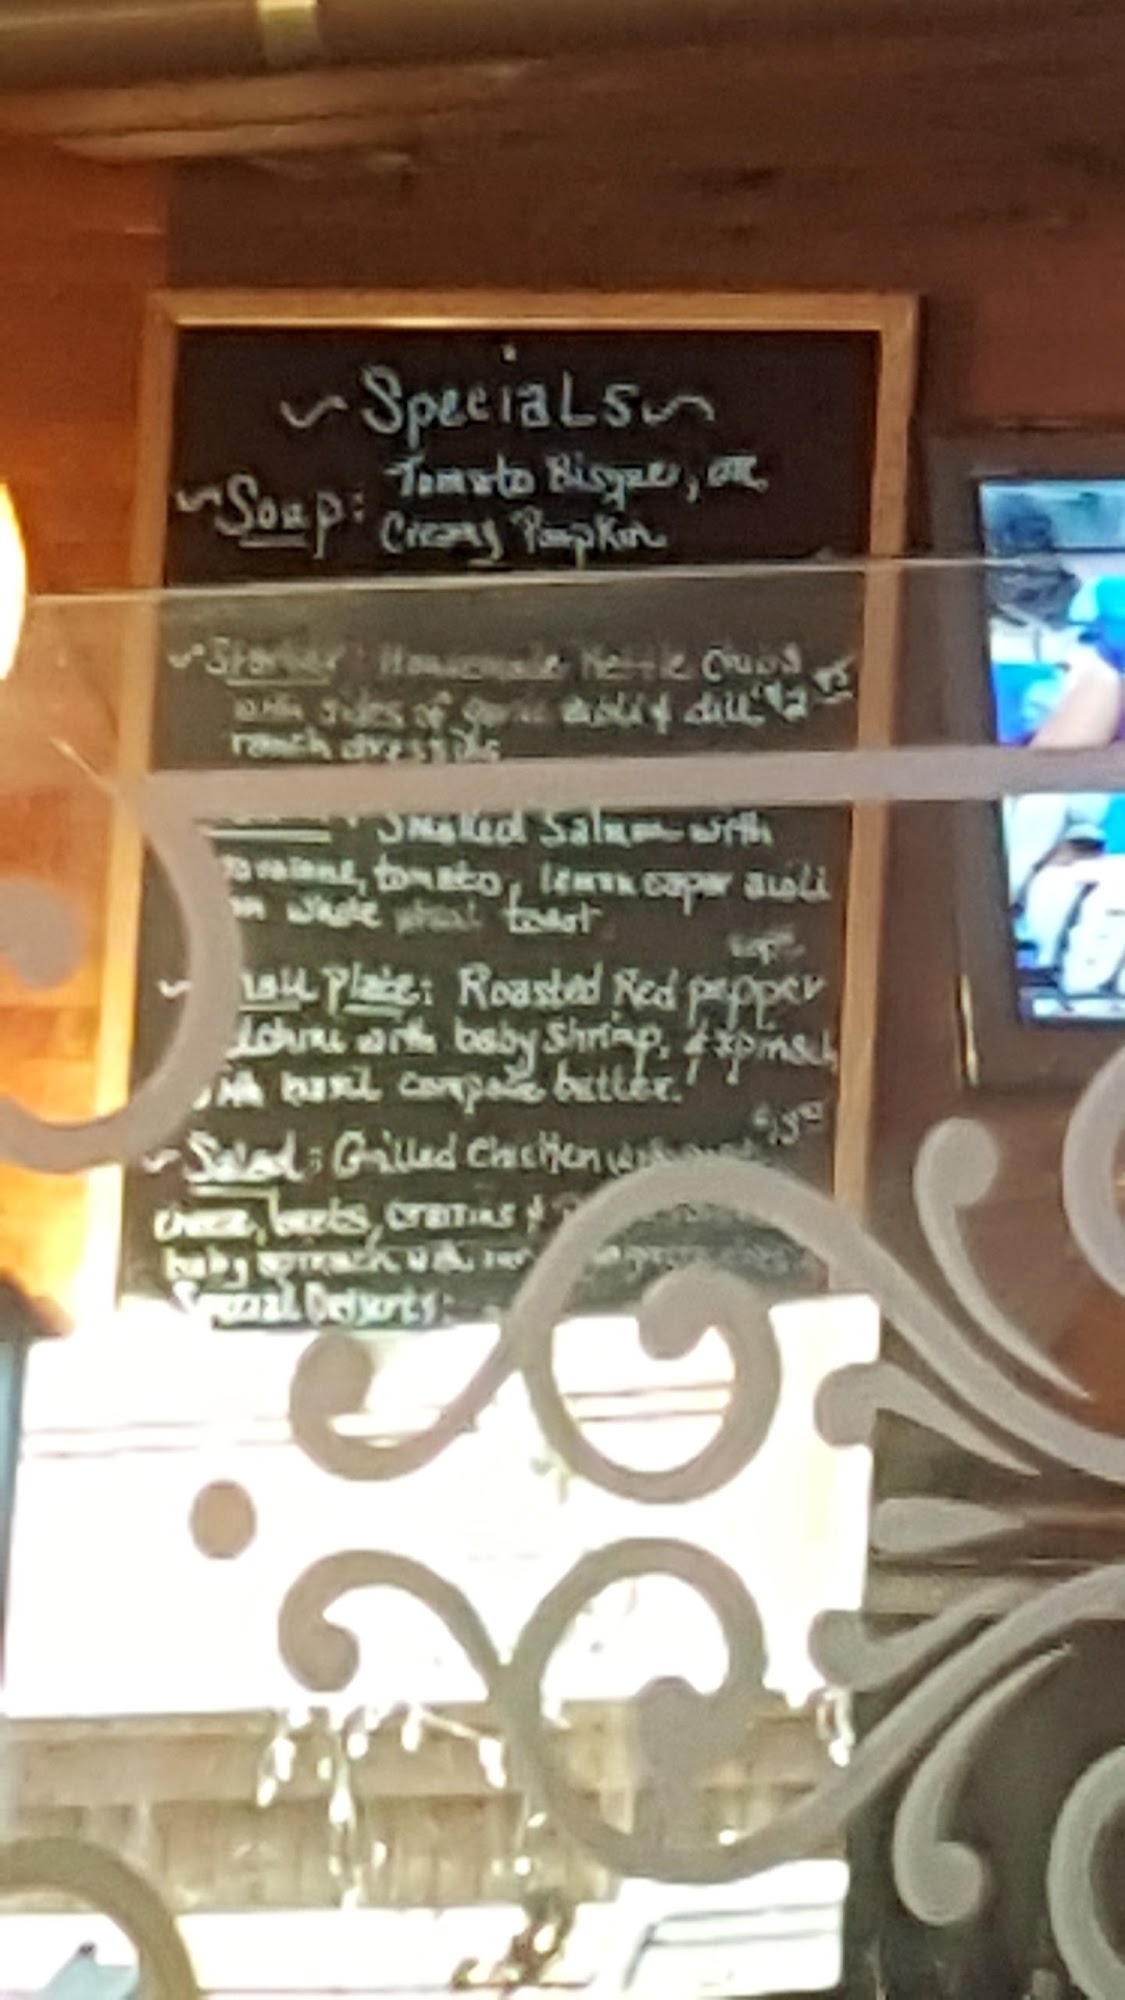 ~Specials~
~Soup: Tomato Bisque, OR
Creamy Pumpkin
~Starter: Homemade Kettle Chips
with sides of garlic aioli & dill
ranch dressing
: Smoked Salmon with
tomato, lemon caper aioli
on whole wheat toast
~ Plate: Roasted Red pepper
with baby shrimp, & spinach
with basil compound butter.
~Salad: Grilled Chicken with
cheese, beets, craisins &
baby spinach with
Special Desserts: